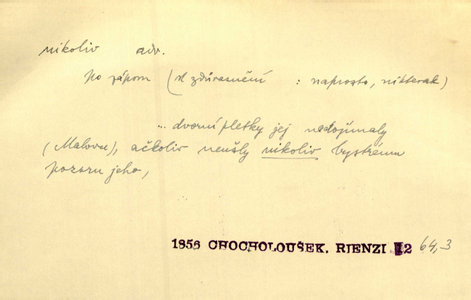 nikoliv adv.
po záporu (k zdůraznění : naprosto, nikterak)
... dvorní pletky jej nedojímaly
(Malovu), ačkoliv neušly nikoliv bystrému
pozoru jeho,
1856 CHOCHOLOUŠEK, RIENZI 2 64,3